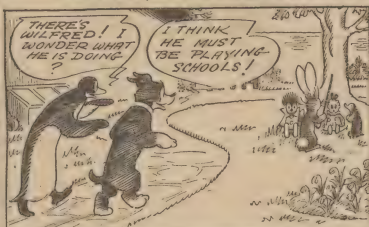 THERE'S
WILFRED! I
WONDER WHAT
HE IS DOING
?
I THINK
HE MUST
BE PLAYING
SCHOOLS!